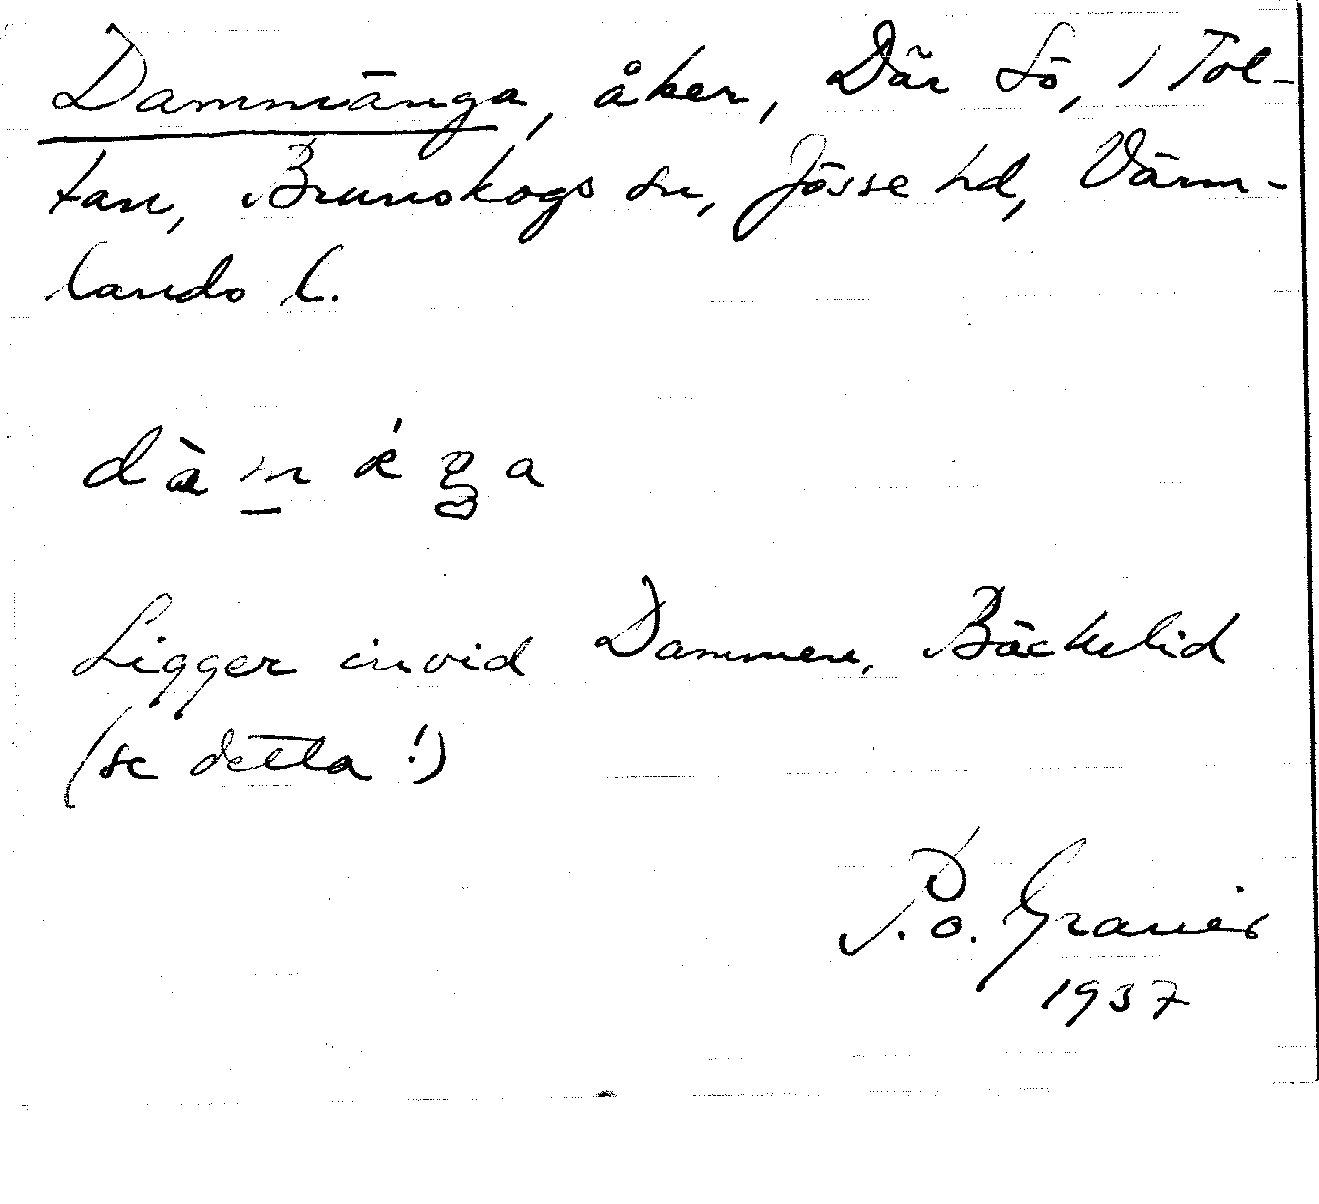 Dammänga, åker, Där Sö, i Tol-
tan, Brunskogs sn, Jösse hd, Värm-
lands l.
Ligger invid Dammen, Bäckelid
(se detta!)
P. O. Graner
1937